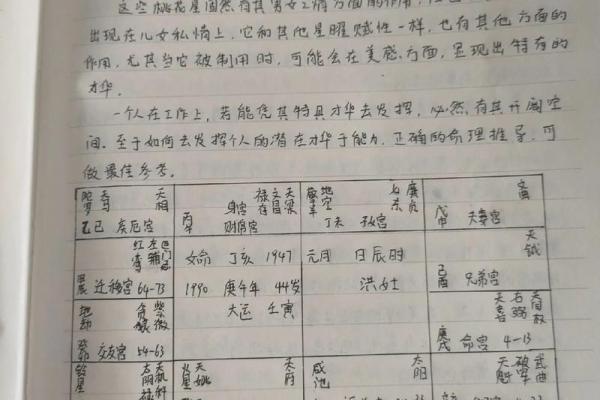 这些桃花星固然有其男女之情方面的作用,
出现在儿女私情上,它和其他星曜赋性一样,也有其他方面的
作用,尤其当它被制用时,可能会在美感方面,呈现出特有的
才华。
一个人在工作上,若能凭其特具才华去发挥,必然有其开阔空
间。至于如何去发挥个人的潜在才华于能力,正确的命理推导,可
做最佳参考。
陀罗 天马 天相
乙巳 疾厄宫
禄存 文昌 天梁
身宫
丙午 财帛宫
擎羊 地空 七杀 廉贞
丁未 子女宫
戊申 夫妻宫
红鸾 左辅 巨门
迁移宫 64-73
女命 丁亥 1947 元月 日辰时
1990 庚午年 44岁 洪女士
大运 壬寅
天钺
己酉 兄弟宫
地劫 贪狼 紫微
癸卯 交友宫 54-63
天喜 右弼
庚戌 命宫 4-13
铃星 太阴 天机
禄 科
火星 天姚 天府
咸池 太阳
天魁 破军 武曲